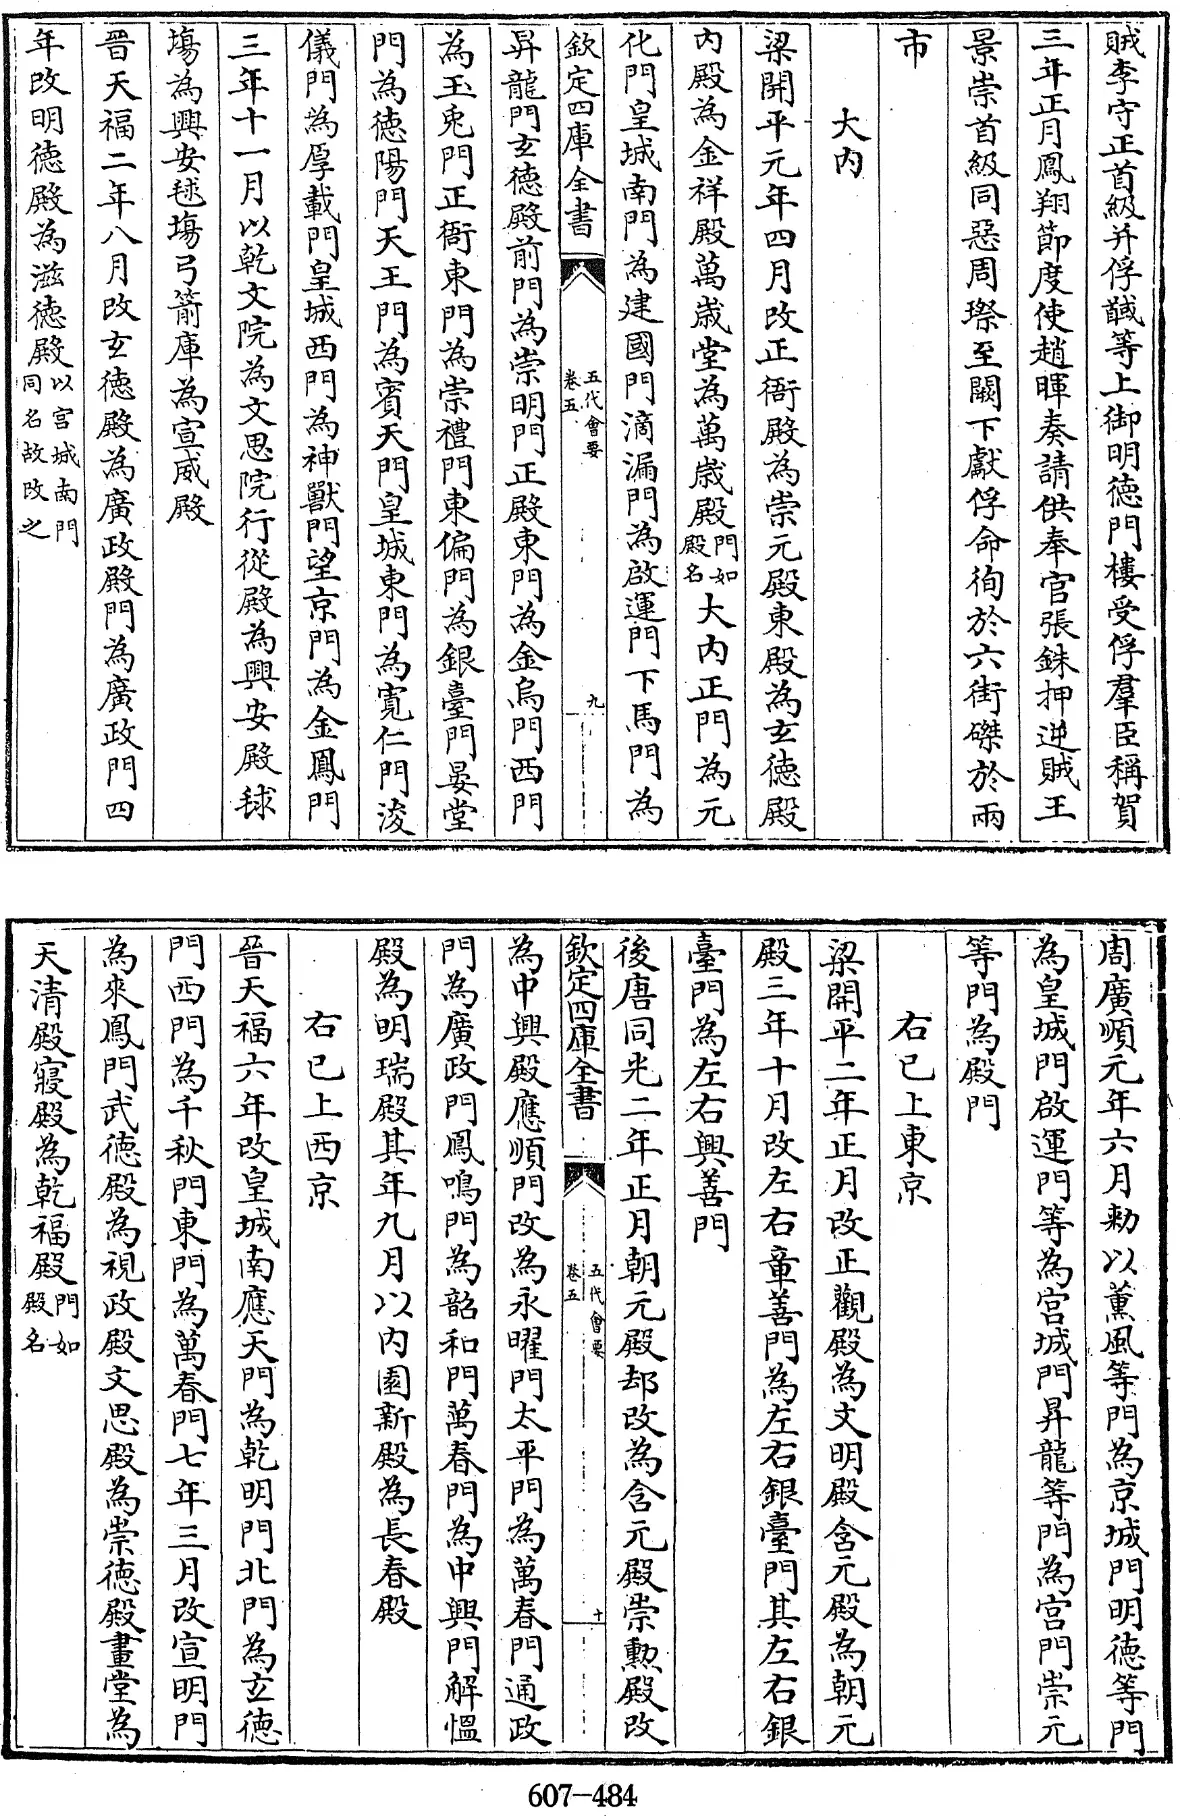 賊李守正首級并俘馘等上御明德門樓受俘羣臣稱賀
三年正月鳳翔節度使趙暉奏請供奉官張銖押逆賊王
景崇首級同惡周璨至闕下獻俘命徇於六街磔於兩
市
大內
梁開平元年四月改正衙殿為崇元殿東殿為玄德殿
內殿為金祥殿萬歲堂為萬歲殿門如殿名大內正門為元
化門皇城南門為建國門滴漏門為啟運門下馬門為
欽定四庫全書 五代會要卷五 九
昇龍門玄德殿前門為崇明門正殿東門為金烏門西門
為玉兎門正衙東門為崇禮門東偏門為銀臺門晏堂
門為德陽門天王門為賓天門皇城東門為寬仁門浚
儀門為厚載門皇城西門為神獸門望京門為金鳳門
三年十一月以乾文院為文思院行從殿為興安殿毬
塲為興安毬塲弓箭庫為宣威殿
晉天福二年八月改玄德殿為廣政殿門為廣政門四
年改明德殿為滋德殿以宮城南門同名故改之
周廣順元年六月勅以薰風等門為京城門明德等門
為皇城門啟運門等為宮城門昇龍等門為宮門崇元
等門為殿門
右已上東京
梁開平二年正月改正觀殿為文明殿含元殿為朝元
殿三年十月改左右章善門為左右銀臺門其左右銀
臺門為左右興善門
後唐同光二年正月朝元殿却改為含元殿崇勲殿改
欽定四庫全書 五代會要卷五 十
為中興殿應順門改為永曜門太平門為萬春門通政
門為廣政門鳳鳴門為韶和門萬春門為中興門解慍
殿為明瑞殿其年九月以內園新殿為長春殿
右已上西京
晉天福六年改皇城南應天門為乾明門北門為玄德
門西門為千秋門東門為萬春門七年三月改宣明門
為來鳳門武德殿為視政殿文思殿為崇德殿畫堂為
天清殿寢殿為乾福殿門如殿名
607-484